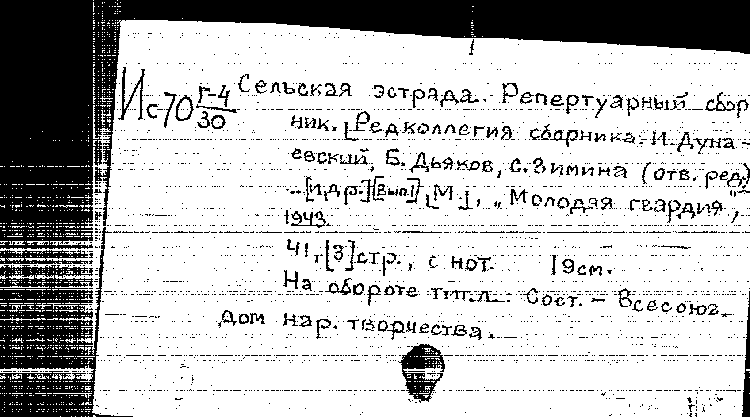 Ис70 Г-4/30 Сельская эстрада. Репертуарный сбор
ник. [Редколлегия сборника: И. Дуна-
евский, Б. Дьяков, С. Зимина (отв. ред.)
...[и др.] [Вып.1], [М.], „Молодая гвардия",
1943.
41, [3] стр., с нот. 19 см.
На обороте тит. л.: Сост. - Всесоюз.
дом нар. творчества.